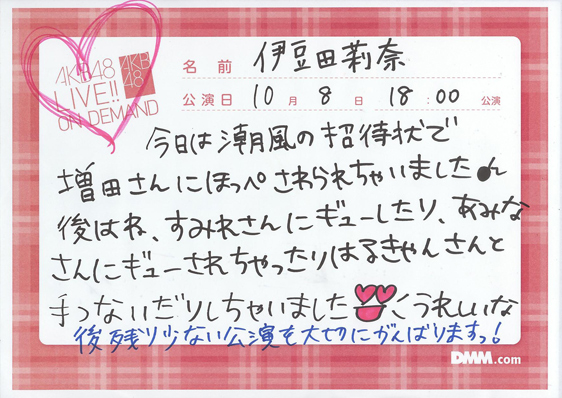 AKB48
LIVE!!
ON DEMAND
AKB
48
名前 伊豆田莉奈
公演日 10月8日 18:00 公演
今日は潮風の招待状で
増田さんにほっぺさわられちゃいました♪
後はね、すみれさんにギューしたり、あみな
さんにギューされちゃったりはるきゃんさんと
手つないだりしちゃいました うれしいな
後残り少ない公演を大切にがんばりますっ!
DMM.com